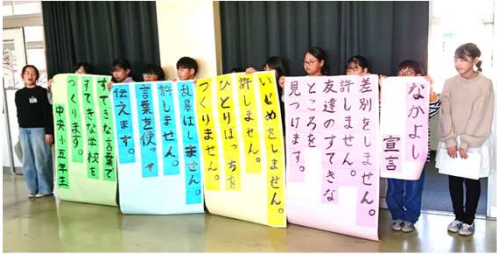 なかよし
宣言
差別をしません。
許しません。
友達のすてきな
ところを
見つけます。
いじめをしません。
許しません。
ひとりぼっちを
つくりません。
乱暴はしません。
許しません。
言葉を使って
伝えます。
すてきな言葉で
すてきな学校を
つくります。
中央小五年生